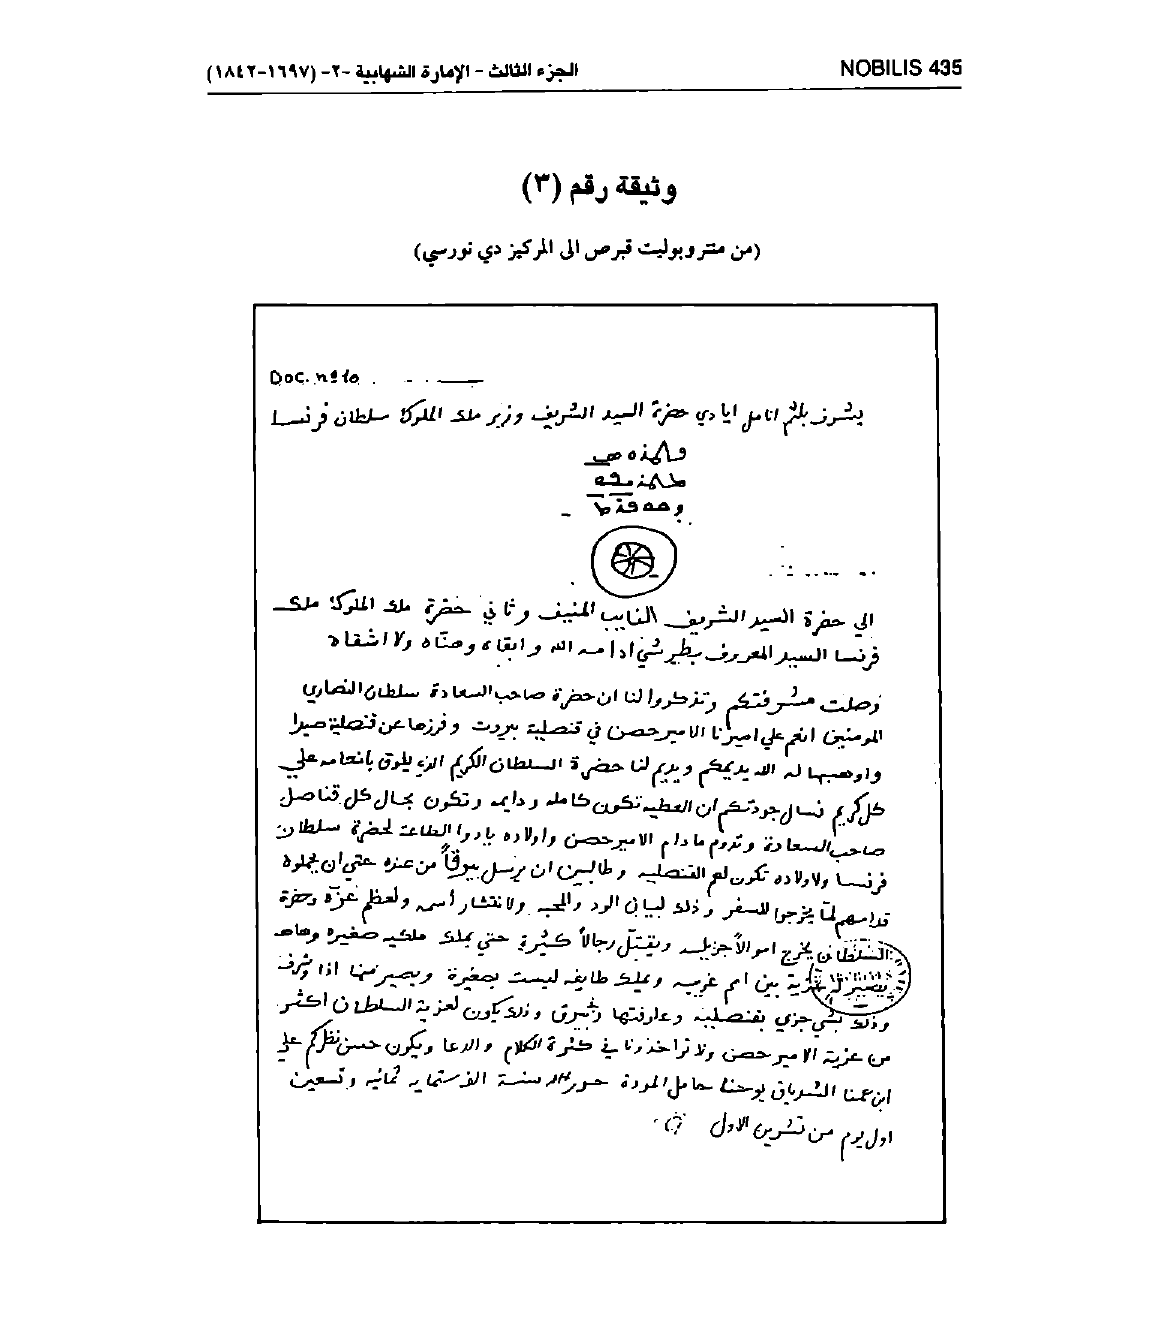 NOBILIS 435
الجزء الثالث - الإمارة الشهابية -٢- (١٦٩٧-١٨٤٢)
وثيقة رقم (٣)
(من متروبوليت قبرص الى المركيز دي نورسي)
Doc. nº 10
يشرف بلثم انامل ايادي حضرة السيد الشريف وزير ملك الملوك سلطان فرنسا
الي حضرة السيد الشريف النايب المنيف وثاني حضرة ملك الملوك ملك
فرنسا السيد المعروف ادامه الله وابقاه وهناه ولا اشقاه
وصلت مشرفتكم وتذكروا لنا ان حضرة صاحب السعادة سلطان النصاري
المومنين انعم علي اميرنا الامير حصن في قنصلية بيروت وفرزها عن قنصلية صيدا
واوهبها له الله يديمكم ويديم لنا حضرة السلطان الكريم الذي يلوق بانعامه علي
كل كريم نسال جودتكم ان العطيه تكون كامله ودايمه وتكون بحال كل قناصل
صاحب السعادة وتدوم ما دام الامير حصن واولاده يادوا الطاعة لحضرة سلطان
فرنسا ولاولاده تكون لهم القنصليه وطالبين ان يرسل بيرقاً من عنده حتي ان يحملوه
قدامهم لمّا يخرجوا للسفر وذلك لبيان الود والمحبه ولانتشار أسمه ولعظم عزّه وحضرة
السلطان يخرج اموالاً جزيله ويقتل رجالاً كثيرة حتي يملك ملكيه صغيره وهاهنا
يصير له عزية بين امم غريبه ويملك طايفه ليست بصغيرة
وذلك بشي جزي بقنصليه وذلك يكون لعزية السلطان اكثر
من عزية الامير حصن ولا تواخذونا في كثرة الكلام والدعا ويكون حسن نظركم علي
ابن عمنا يوحنا حامل المودة سنة الف ستمايه ثمانيه وتسعين
اول يوم من تشرين الاول